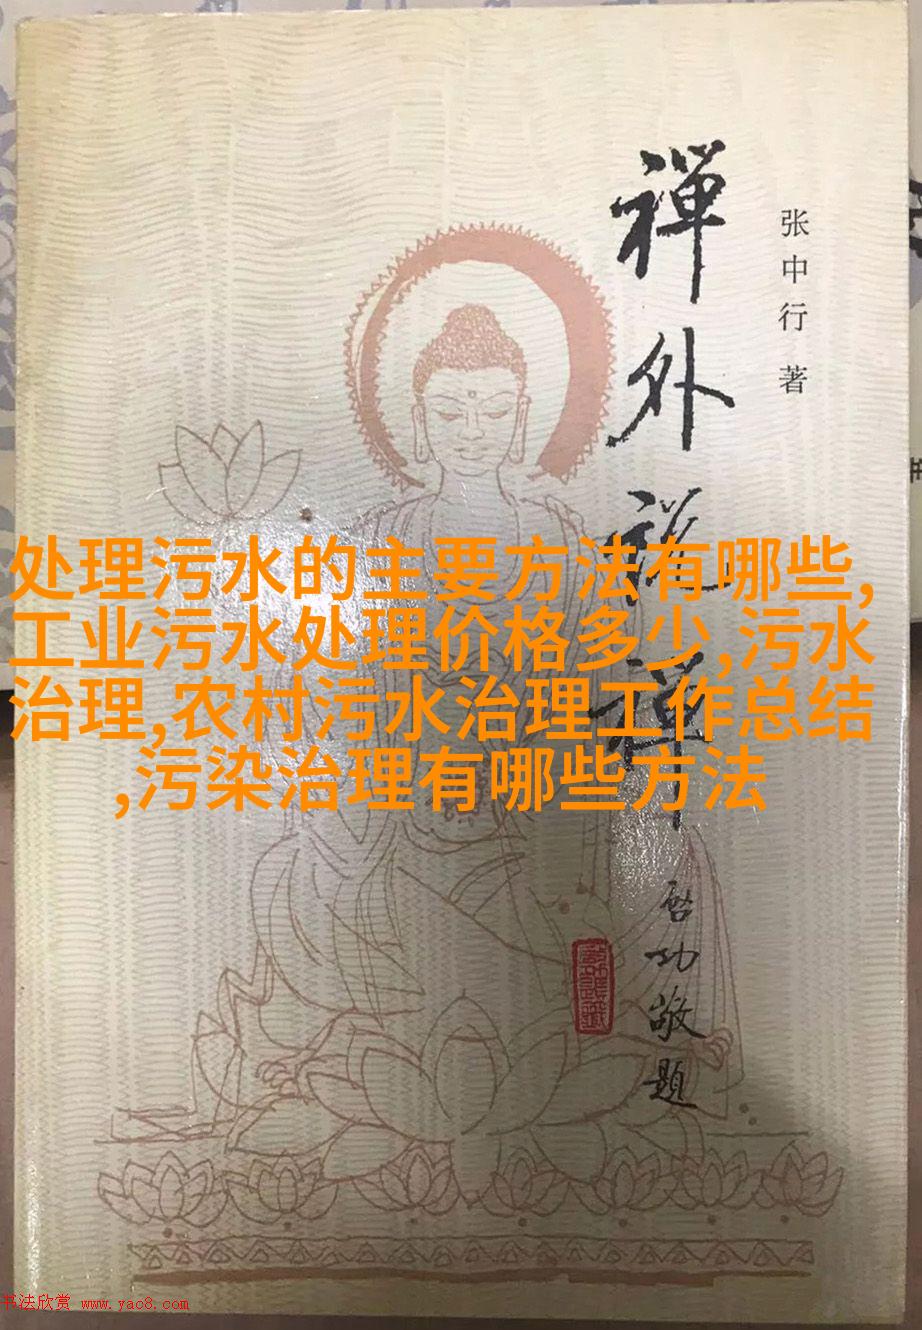 张中行 著
禅外说禅
启功敬题
处理污水的主要方法有哪些,
工业污水处理价格多少,污水
治理,农村污水治理工作总结
,污染治理有哪些方法
书法欣赏 www.yac8.com